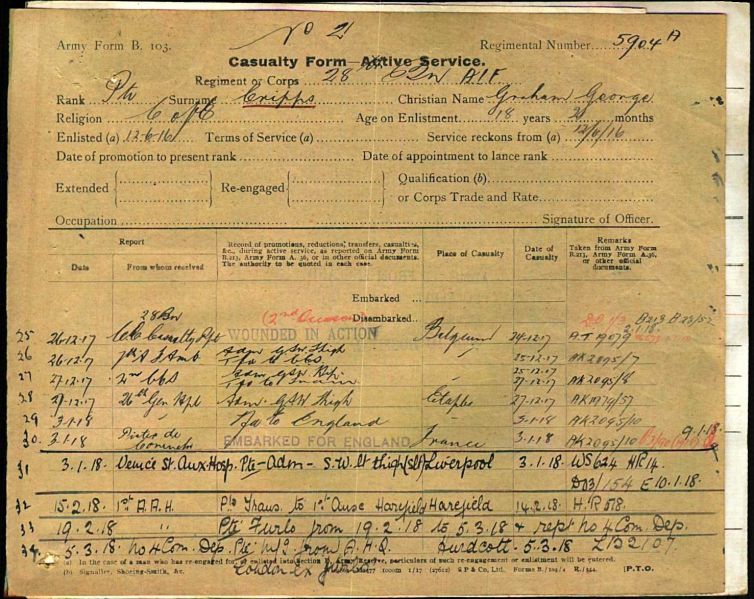 No 2
Army Form B. 103.
Regimental Number 5904 A
Casualty Form—Active Service.
Regiment or Corps 28 Bn AIF
Rank Pte Surname Cripps Christian Name Graham George
Religion C of E Age on Enlistment 18 years months
Enlisted (a) 12.6.16 Terms of Service (a) Service reckons from (a) 12/6/16
Date of promotion to present rank Date of appointment to lance rank
Extended Re-engaged Qualification (b)
or Corps Trade and Rate
Occupation Signature of Officer.
Report
Date From whom received
Record of promotions, reductions, transfers, casualties,
&c., during active service, as reported on Army Form
B.213, Army Form A. 36, or in other official documents.
The authority to be quoted in each case.
Place of Casualty
Date of
Casualty
Remarks
Taken from Army Form
B.213, Army Form A.36,
or other official
documents.
Embarked
Disembarked
28 Bn
(2nd Occasion)
25 26.12.17 WOUNDED IN ACTION Belgium 24.12.17
26 26.12.17 Adm GSW thigh 25.12.17 AK2095/7
Tfd to CCS
27 27.12.17 2nd CCS 25.12.17
27.12.17 AK2095/8
28 27.12.17 26th Gen Hpl Adm. GSW thigh Etaples 27.12.17
29 3.1.18 To England 3.1.18 AK2095/10
30 3.1.18 EMBARKED FOR ENGLAND France 3.1.18 AK2095/10 9.1.18
31 3.1.18. Aux. Hosp. Pte - Adm - S.W. lt thigh (Slt) Liverpool 3.1.18. WS624 HR14.
D03/154 E 10.1.18.
32 15.2.18 1st A.A.H. Pte Trans. to 1st Ause Harefield Harefield 14.2.18 H.R 518.
33 19.2.18 " Pte Furlo from 19.2.18 to 5.3.18 & rept No 4 Com. Dep.
34 5.3.18 No 4 Com. Dep. Pte M/I from A.H.Q. Hurdcott 5.3.18 LB2107.
London ex furlo
(a) In the case of a man who has re-engaged for, or enlisted into Section D. Army Reserve, particulars of such re-engagement or enlistment will be entered.
(b) Signaller, Shoeing-Smith, &c.
1000m 1/17 G P & Co., Ltd. Forms B./103/2
[P.T.O.